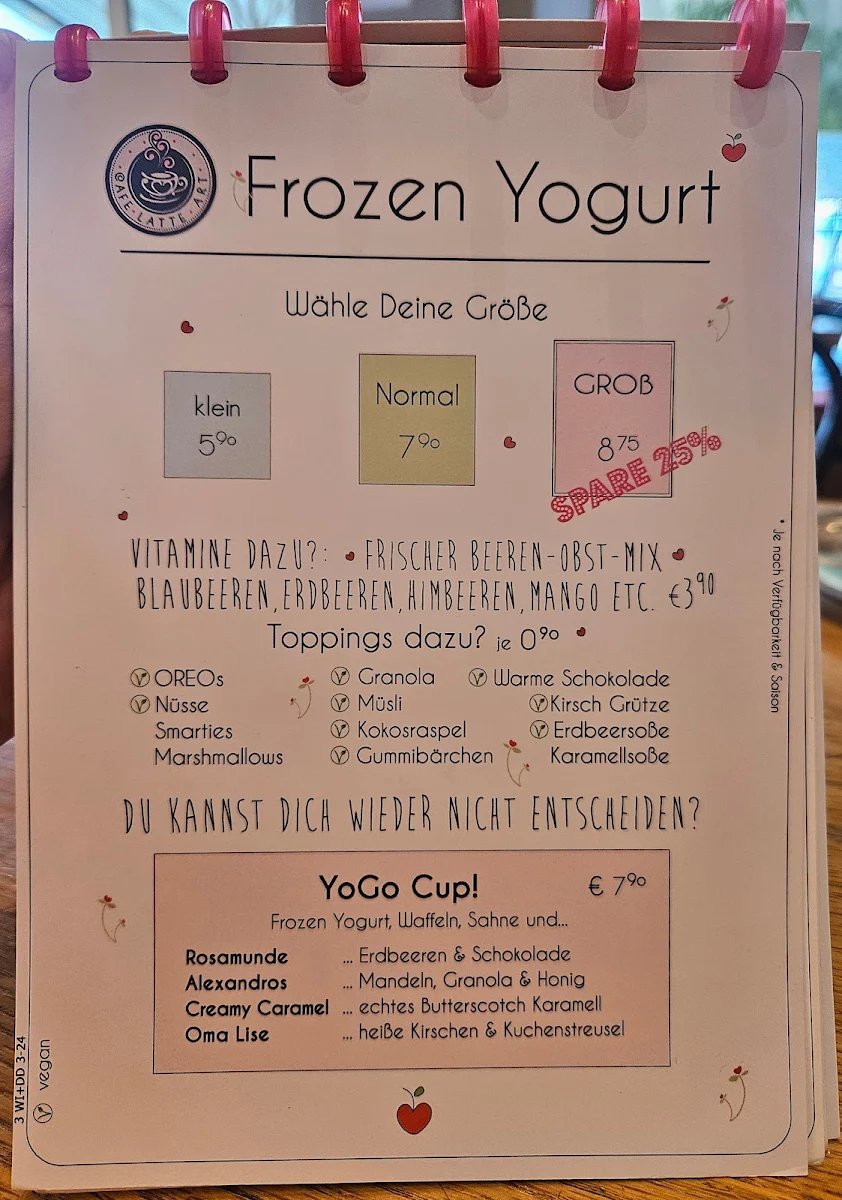 CAFE · LATTE · ART
Frozen Yogurt
Wähle Deine Größe
klein
5⁹⁰
Normal
7⁹⁰
GROß
8⁷⁵
SPARE 25%
VITAMINE DAZU?: FRISCHER BEEREN-OBST-MIX
BLAUBEEREN, ERDBEEREN, HIMBEEREN, MANGO ETC. €3⁹⁰
* Je nach Verfügbarkeit & Saison
Toppings dazu? je 0⁹⁰
OREOs
Nüsse
Smarties
Marshmallows
Granola
Müsli
Kokosraspel
Gummibärchen
Warme Schokolade
Kirsch Grütze
Erdbeersoße
Karamellsoße
DU KANNST DICH WIEDER NICHT ENTSCHEIDEN?
YoGo Cup! € 7⁹⁰
Frozen Yogurt, Waffeln, Sahne und...
Rosamunde ... Erdbeeren & Schokolade
Alexandros ... Mandeln, Granola & Honig
Creamy Caramel ... echtes Butterscotch Karamell
Oma Lise ... heiße Kirschen & Kuchenstreusel
3 WI+DD 3-24
vegan